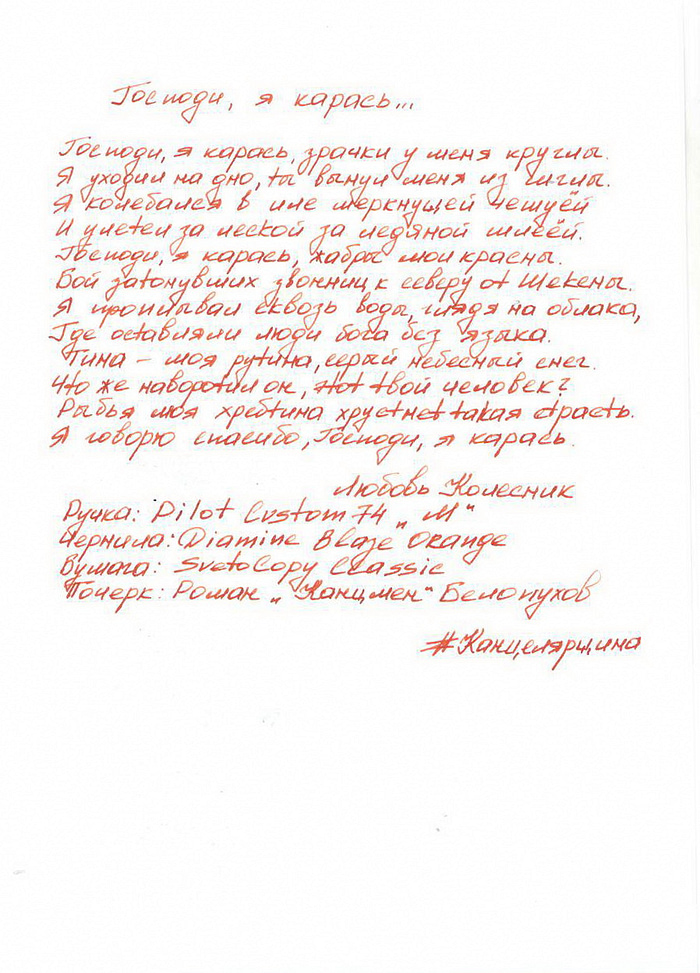 Господи, я карась...
Господи, я карась, зрачки у меня круглы.
Я уходил на дно, ты вынул меня из иглы.
Я колебался в иле меркнущей чешуёй
И улетел за леской за ледяной шлеёй.
Господи, я карась, жабры мои красны.
Бой затонувших звонниц к северу от Шексны.
Я проплывал сквозь воды, глядя на облака,
Где оставляли люди бога без языка.
Тина - моя рутина, серый небесный снег.
Что же наворотил он, этот твой человек?
Рыбья моя хребтина хрустнет такая страсть.
Я говорю спасибо, Господи, я карась.
Любовь Колесник
Ручка: Pilot Custom 74 „M"
Чернила: Diamine Blaze Orange
Бумага: SvetoCopy Classic
Почерк: Роман „Канцмен" Белопухов
#Канцелярщина